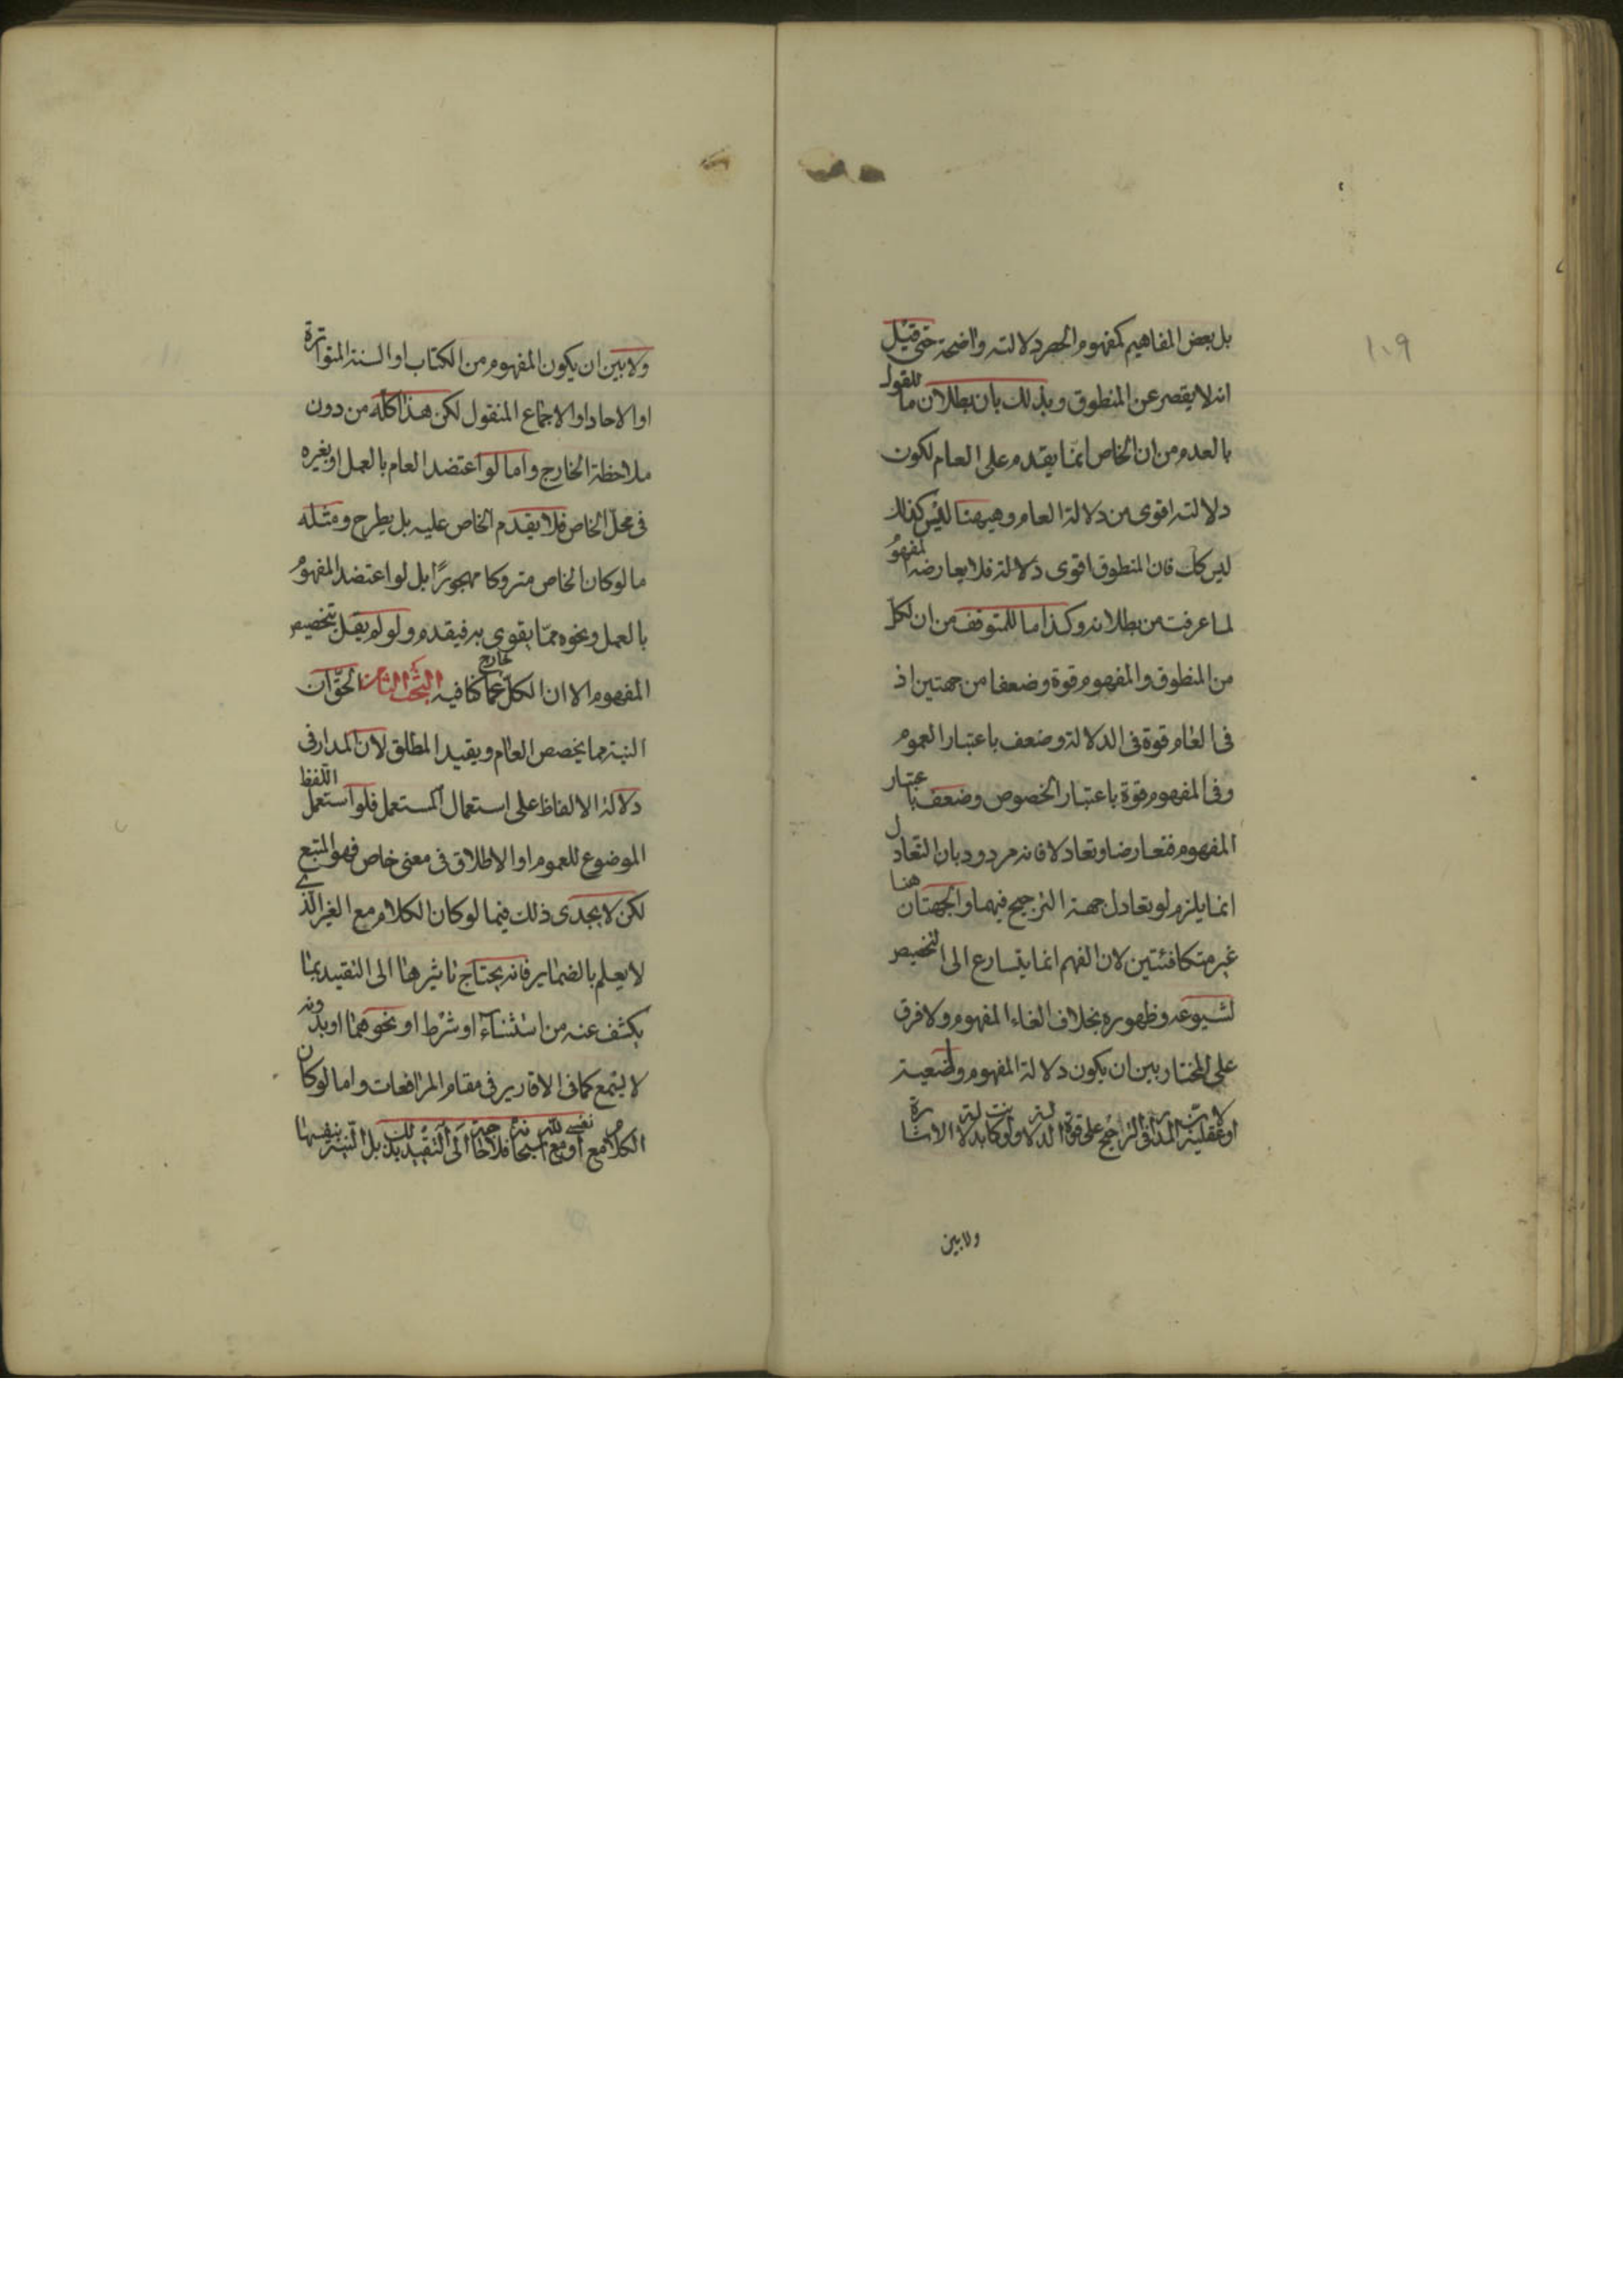 ١٠٩
بل بعض المفاهيم كمفهوم الحصر دلالته واضحة حتى قيل
انه لا يقصر عن المنطوق وبذلك بان بطلان ما للقول
بالعدم من ان الخاص انما يقدم على العام لكون
دلالته اقوى من دلالة العام وهيهنا ليس كذلك
ليس كك فان المنطوق اقوى دلالة فلا يعارضه المفهوم
لما عرفت من بطلانه وكذا ما للمتوقف من ان لكل
من المنطوق والمفهوم قوة وضعفا من جهتين اذ
فى العام قوة فى الدلالة وضعف باعتبار العموم
وفى المفهوم قوة باعتبار الخصوص وضعف باعتبار
المفهوم فتعارضا وتعادلا فانه مردود بان التعادل
انما يلزم لو تعادل جهة الترجيح فيهما والجهتان هنا
غير متكافئتين لان الفهم انما يتسارع الى التخصيص
لشيوعه وظهوره بخلاف الغاء المفهوم ولا فرق
على المختار بين ان يكون دلالة المفهوم وضعية
او عقلية لان المدار فى الترجيح على قوة الدلالة ولو كانت بدلالة الاشارة
ولا بين
ولا بين ان يكون المفهوم من الكتاب او السنة المتواترة
او الاحاد او الاجماع المنقول لكن هذا كله من دون
ملاحظة الخارج واما لو اعتضد العام بالعمل او بغيره
فى محل الخاص فلا يقدم الخاص عليه بل يطرح ومثله
ما لو كان الخاص متروكا مهجورًا بل لو اعتضد المفهوم
بالعمل ونحوه مما يقوى به فيقدم ولو لم يقل بتخصيص
المفهوم الا ان الكل خارج عما كنا فيه البحث الثامن الحق ان
النية مما يخصص العام ويقيد المطلق لان المدار فى
دلالة الالفاظ على استعمال المستعمل فلو استعمل اللفظ
الموضوع للعموم او الاطلاق فى معنى خاص فهو المتبع
لكن لا يجدى ذلك فيما لو كان الكلام مع الغير الذى
لا يعلم بالضماير فانه يحتاج تاثيرها الى التقييد بما
يكشف عنه من استثناء او شرط او نحوهما او بدونه
لا يسمع كما فى الاقارير فى مقام المرافعات واما لو كان
الكلام مع نفسه او مع الله سبحانه فلا حاجة الى التقييد بذلك بل النية بنفسها